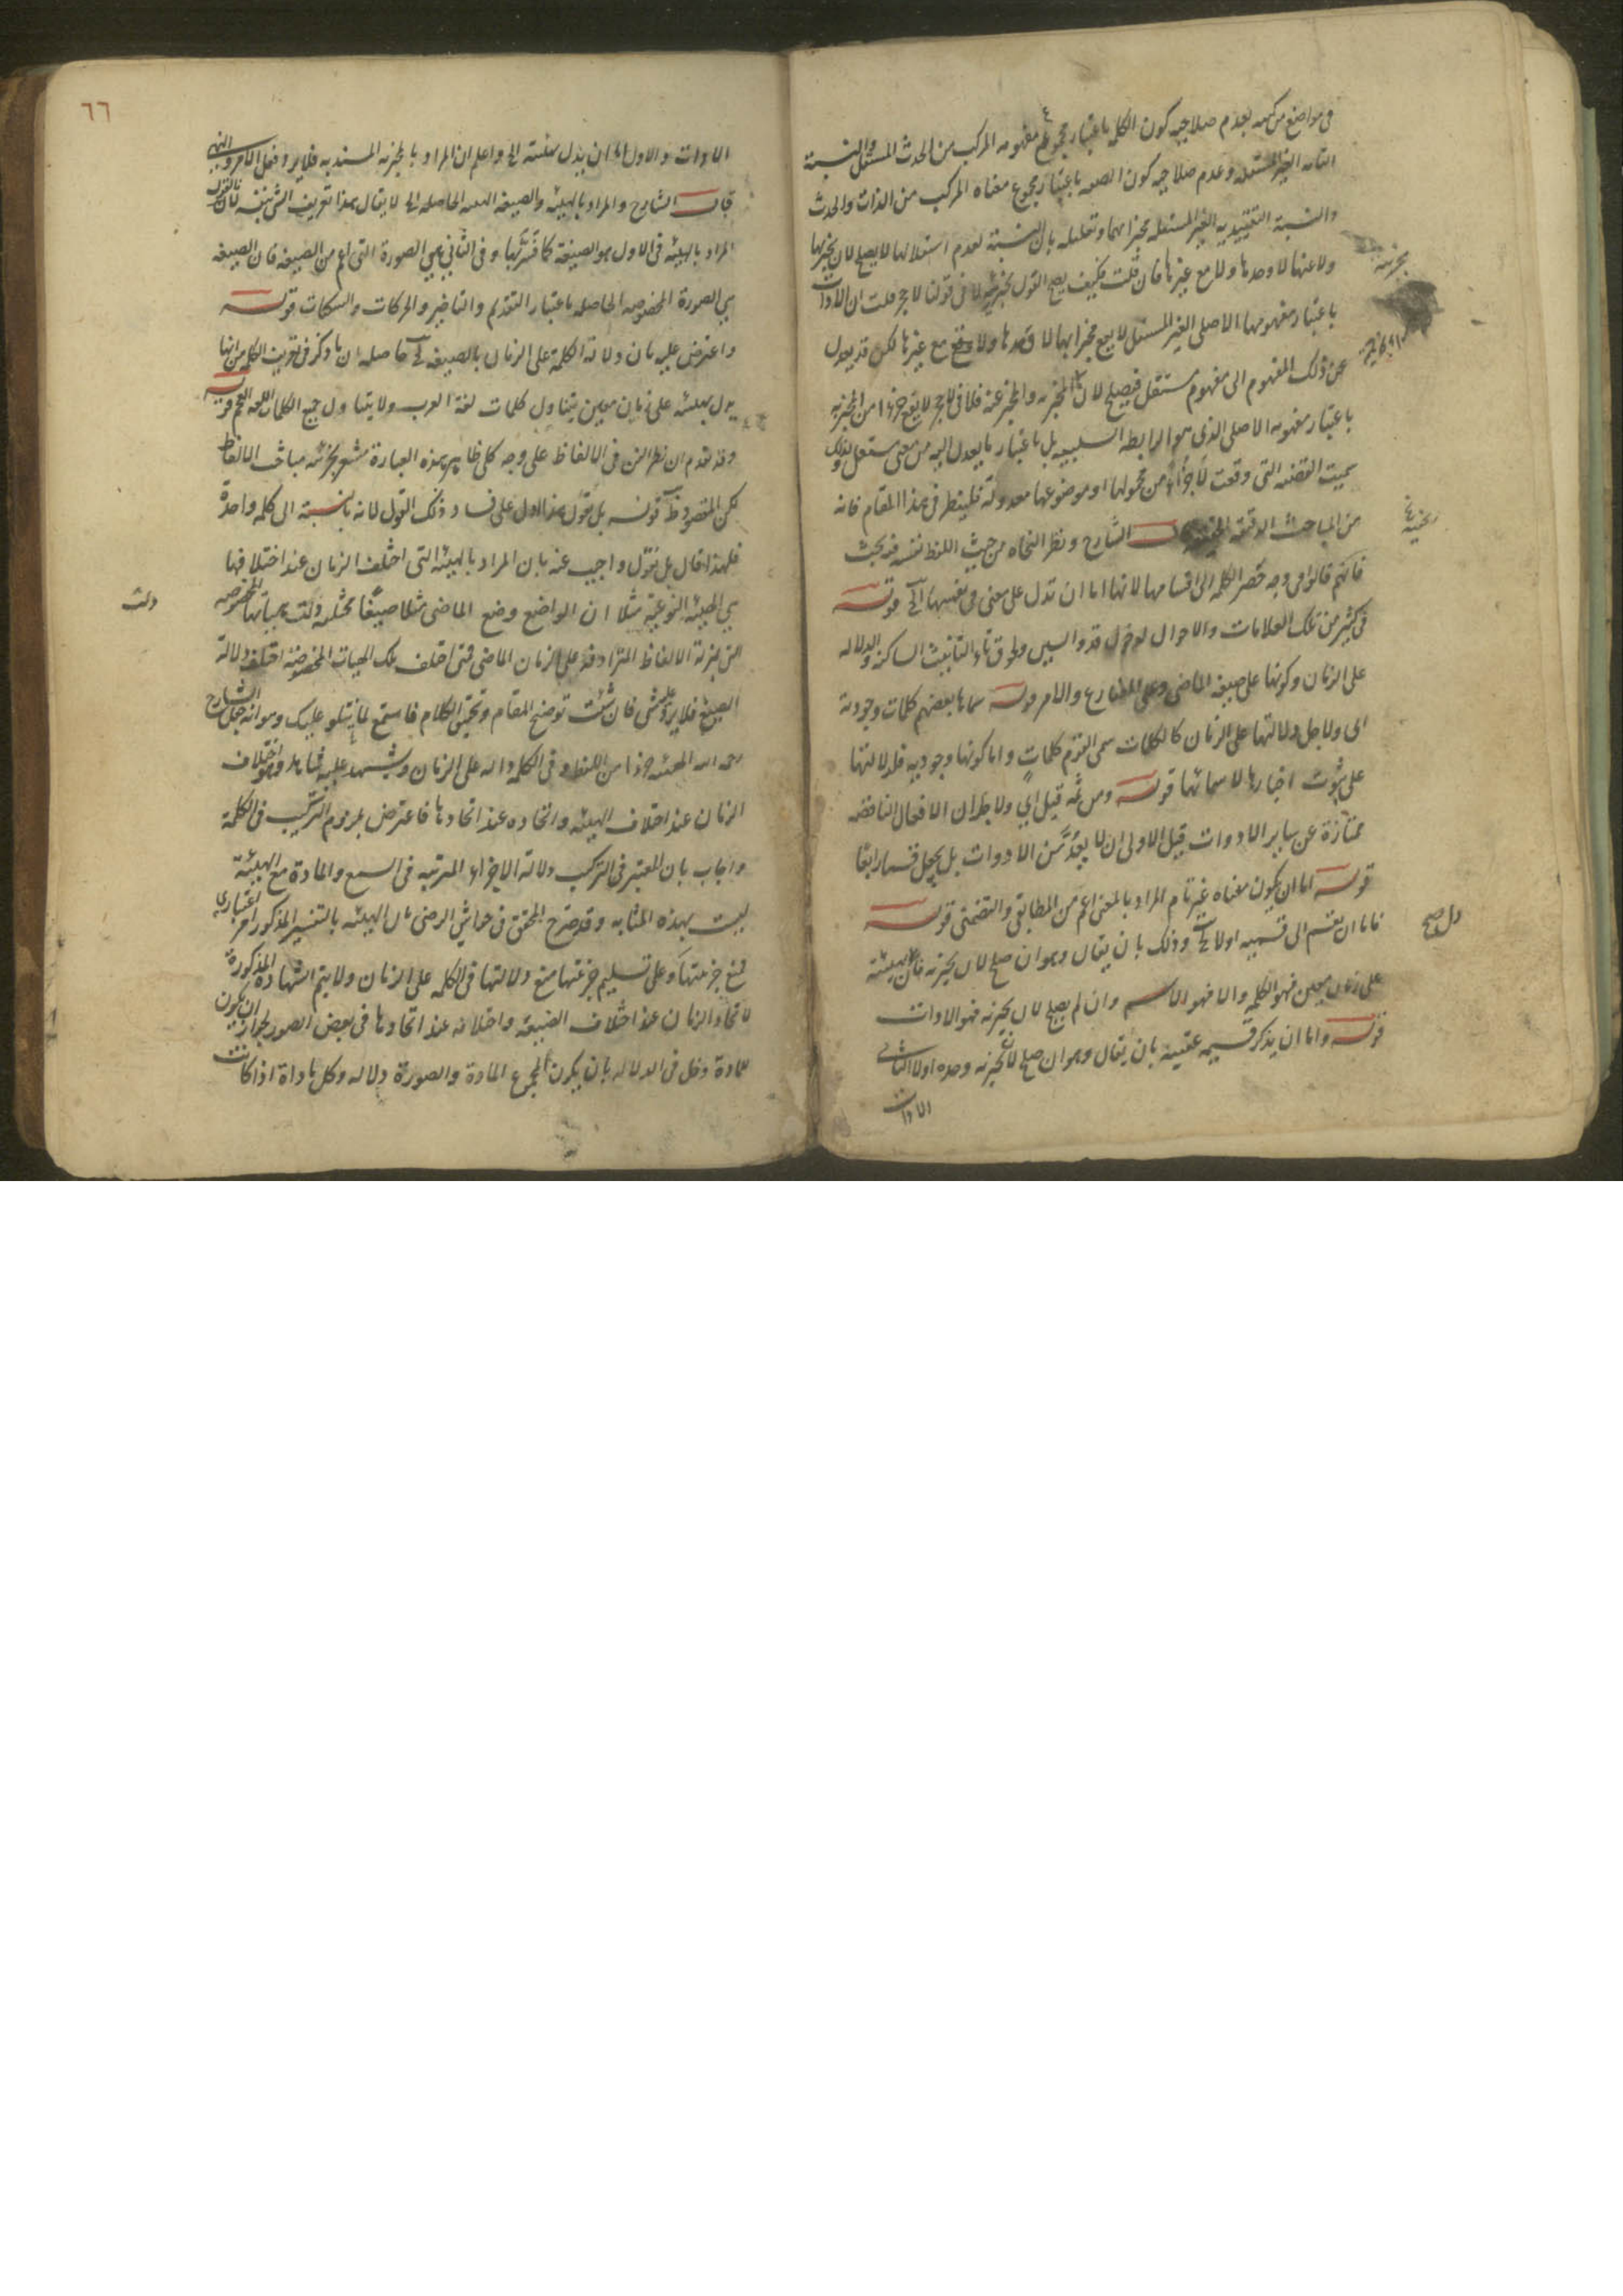 فى مواضع من كتبه بعدم صلاحية كون الكلمة باعتبار مجموع مفهومه المركب من الحدث المستقل والنسبة
التامة الغير المستقلة وعدم صلاحية كون الصفة باعتبار مجموع معناه المركب من الذات والحدث
والنسبة التقييدية الغير المستقلة مخبرا بهما وتعليله بان النسبة لعدم استقلالها لا يصلح لان يخبر بها
ولا عنها لا وحدها ولا مع غيرها فان قلت كيف يصح القول بجزئية لا فى قولنا لا حجر قلت ان الادات
باعتبار مفهومها الاصلى الغير المستقل لا يصح مخبرا بها لا وحدها ولا مع غيرها لكن قد يعدل
عن ذلك المفهوم الى مفهوم مستقل فيصلح لان المخبر به والمخبر عنه فلا فى لا حجر لا يقع جزءا من المخبر به
باعتبار مفهومه الاصلى الذى هو الرابطة السلبية بل باعتبار ما يعدل اليه من معنى مستقل ولذلك
سميت القضية التى وقعت لا جزءا من محمولها او موضوعها معدولة فلينظر فى هذا المقام فانه
من المباحث الدقيقة الشارح ونظر النحاة من حيث اللفظ نفسه قد بحث
فانهم قالوا فى وجه حصر الكلمة الى اقسامها لانها اما ان تدل على معنى فى نفسها الخ قوله
فى كثير من تلك العلامات والاحوال لدخول قد والسين ولحوق تاء التانيث الساكنة والدلالة
على الزمان وكونها على صيغة الماضى وعلى المضارع والامر قوله سماها بعضهم كلمات وجودية
اى ولاجل دلالتها على الزمان كالكلمات سمى القوم كلمات واما كونها وجودية فلدلالتها
على ثبوت اخبارها لاسمائها قوله ومن ثمه قيل اى ولاجل ان الافعال الناقصة
ممتازة عن ساير الادوات قيل الاولى ان لا يعد من الادوات بل يجعل قسما رابعا
قوله اما ان يكون معناه غير تام المراد بالمعنى اعم من المطابقى والتضمنى قوله
فاما ان يقسم الى قسميه اولا الخ وذلك بان يقال وهو ان صلح لان يخبر به فان بهيئته
على زمان معين فهو الكلمة والا فهو الاسم وان لم يصلح لان يخبر به فهو الادات
قوله واما ان يذكر قسيمه عقيبه بان يقال وهو ان صلح لان يخبر به وحده اولا الثانى
الادات
دل صح
٦٦
الادات والاول اما ان يدل بهيئته الخ واعلم ان المراد بالمخبر به المسند به فلا يرد فعل الامر والنهى
قال الشارح والمراد بالهيئة والصيغة الهيئة الحاصلة الخ لا يقال هذا تعريف الشئ بنفسه فانا نقول
المراد بالهيئة فى الاول هو الصيغة كما فسرها وفى الثانى هى الصورة التى اعم من الصيغة فان الصيغة
هى الصورة المخصوصة الحاصلة باعتبار التقديم والتاخير والحركات والسكنات قوله
واعترض عليه بان دلالة الكلمة على الزمان بالصيغة الخ حاصله ان ما ذكر فى تعريف الكلمة من انها
يدل بهيئته على زمان معين يتناول كلمات لغة العرب ولا يتناول جميع الكلمات اللغة العجم قوله
وقد تقدم ان نظر الفن فى الالفاظ على وجه كلى ظاهر هذه العبارة مشعر بجزئية مباحث الالفاظ
لكن المقصود ظ قوله بل نقول هذا اول على فساد ذلك القول لانه بالنسبة الى كلمة واحدة
فلهذا قال بل نقول واجيب عنه بان المراد بالهيئة التى اختلف الزمان عند اختلافها
هى الهيئة النوعية مثلا ان الواضع وضع الماضى مثلا صيغا مختلفة دلت بهيئاتها المخصوصة
دلت
هى بمنزلة الالفاظ المترادفة على الزمان الماضى فمتى اختلف تلك الهيات المخصوصة اختلف دلالة
الصيغ فلا يرد شئ فان شئت توضيح المقام وتحقيق الكلام فاستمع لما يتلو عليك وهو انه جعل الشارح
رحمه الله الهيئة جزءا من اللفظ وفى الكلمة دالة على الزمان ويشهد عليه شاهد وهو اختلاف
الزمان عند اختلاف الهيئة واتحاده عند اتحادها فاعترض بلزوم التركيب فى الكلمة
واجاب بان المعتبر فى التركيب دلالة الاجزاء المرتبة فى السمع والمادة مع الهيئة
ليست بهذه المثابه وقد صرح المحقق فى حواشى الرضى بان الهيئة بالتفسير المذكور امر اعتبارى
فمنع جزئيتها وعلى تسليم جزئيتها منع دلالتها فى الكلمة على الزمان ولا يتم الشهادة المذكورة
لاتحاد الزمان عند اختلاف الصيغة واختلافه عند اتحادها فى بعض الصور لجواز ان يكون
للمادة دخل فى الدلالة بان يكون لمجموع المادة والصورة دلالة وكل مادة اذا كانت